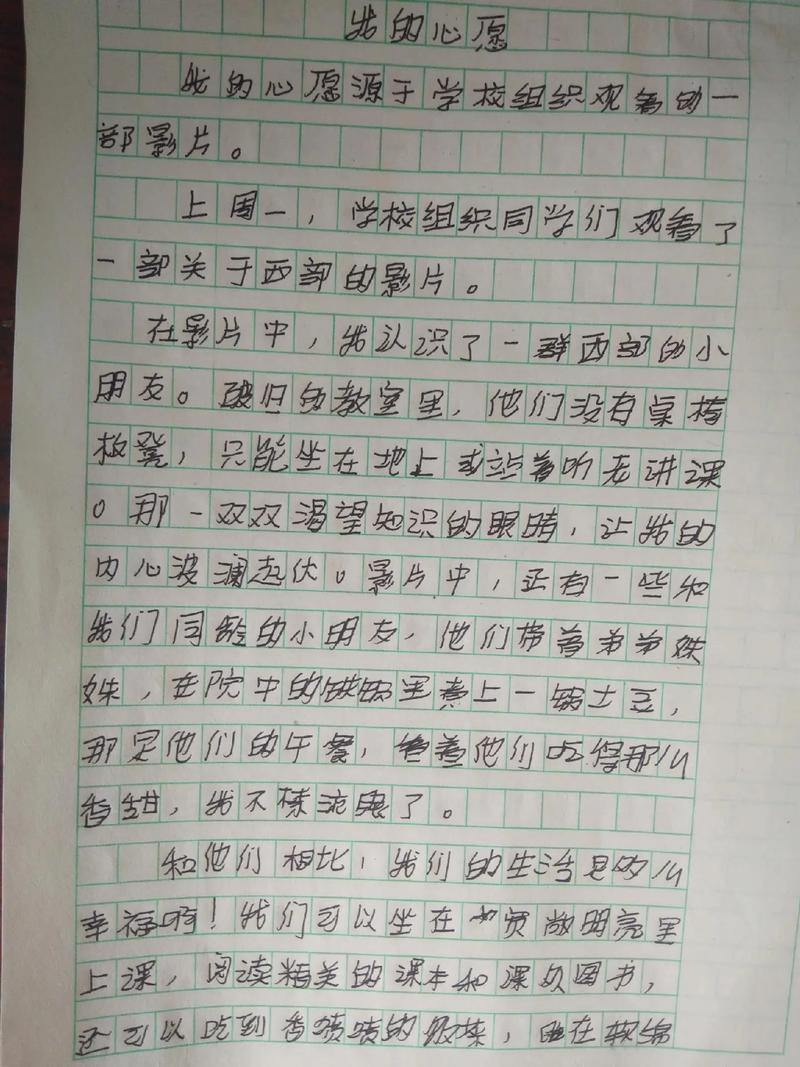 我的心愿
我的心愿源于学校组织观看的一
部影片。
上周一，学校组织同学们观看了
一部关于西部的影片。
在影片中，我认识了一群西部的小
朋友。破旧的教室里，他们没有桌椅
板凳，只能坐在地上或站着听老讲课
。那一双双渴望知识的眼睛，让我的
内心波澜起伏。影片中，还有一些和
我们同龄的小朋友，他们带着弟弟妹
妹，在院中的铁锅里煮上一锅土豆，
那是他们的午餐，看着他们吃得那么
香甜，我不禁流泪了。
和他们相比，我们的生活是多么
幸福啊！我们可以坐在宽敞明亮里
上课，阅读精美的课本和课外图书，
还可以吃到香喷喷的饭菜，在软绵